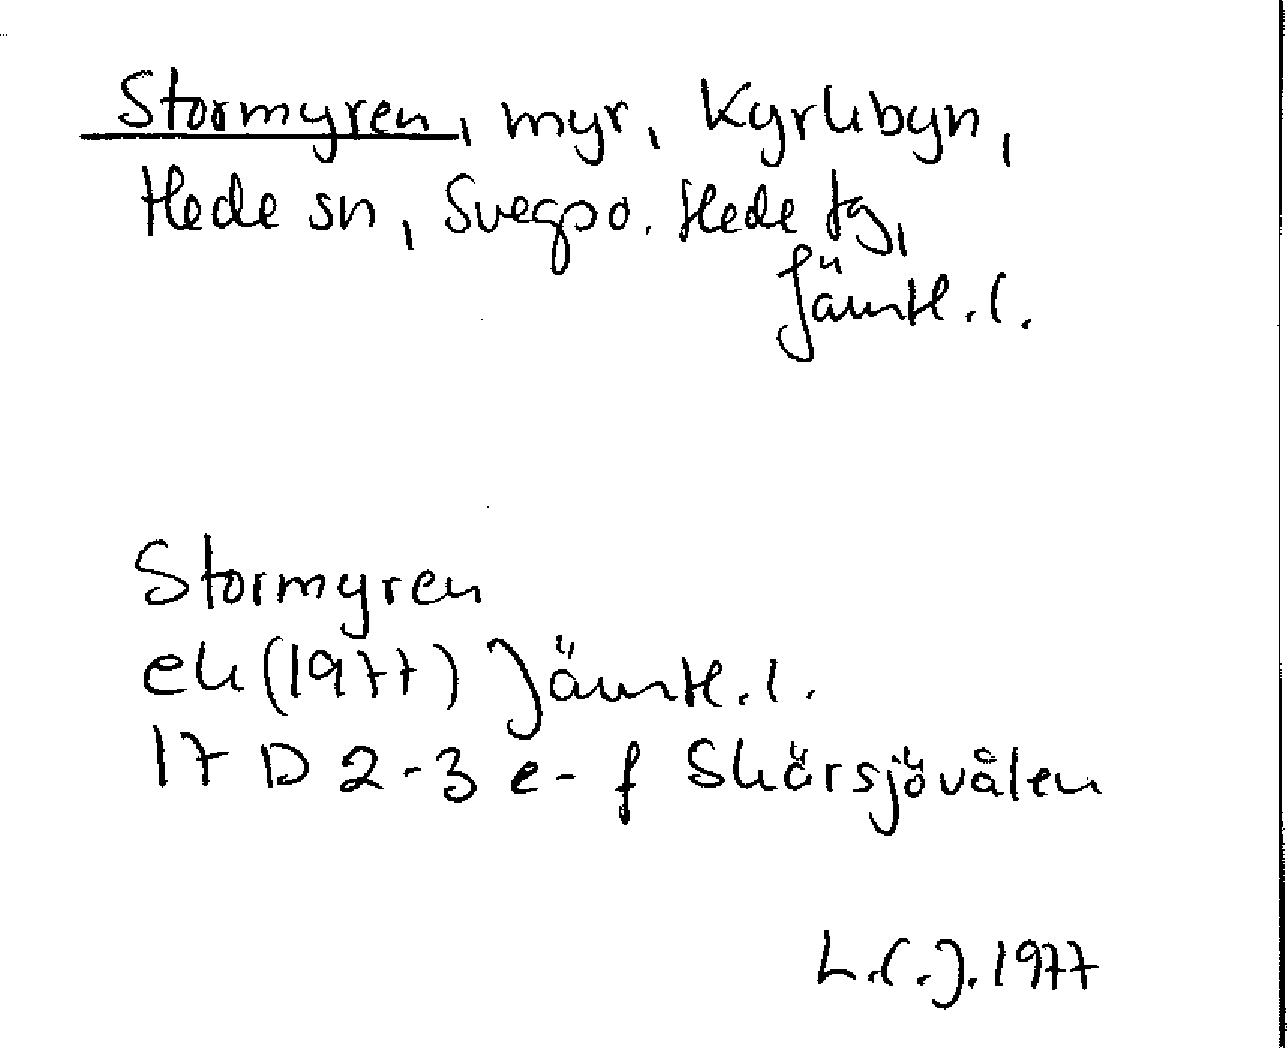 Stormyren, myr, Kyrkbyn,
Hede sn, Svegpo. Hede tg,
Jämtl. l.
Stormyren
ek (1977) Jämtl. l.
17 D 2-3 e-f Skärsjövålen
L.C.J. 1977